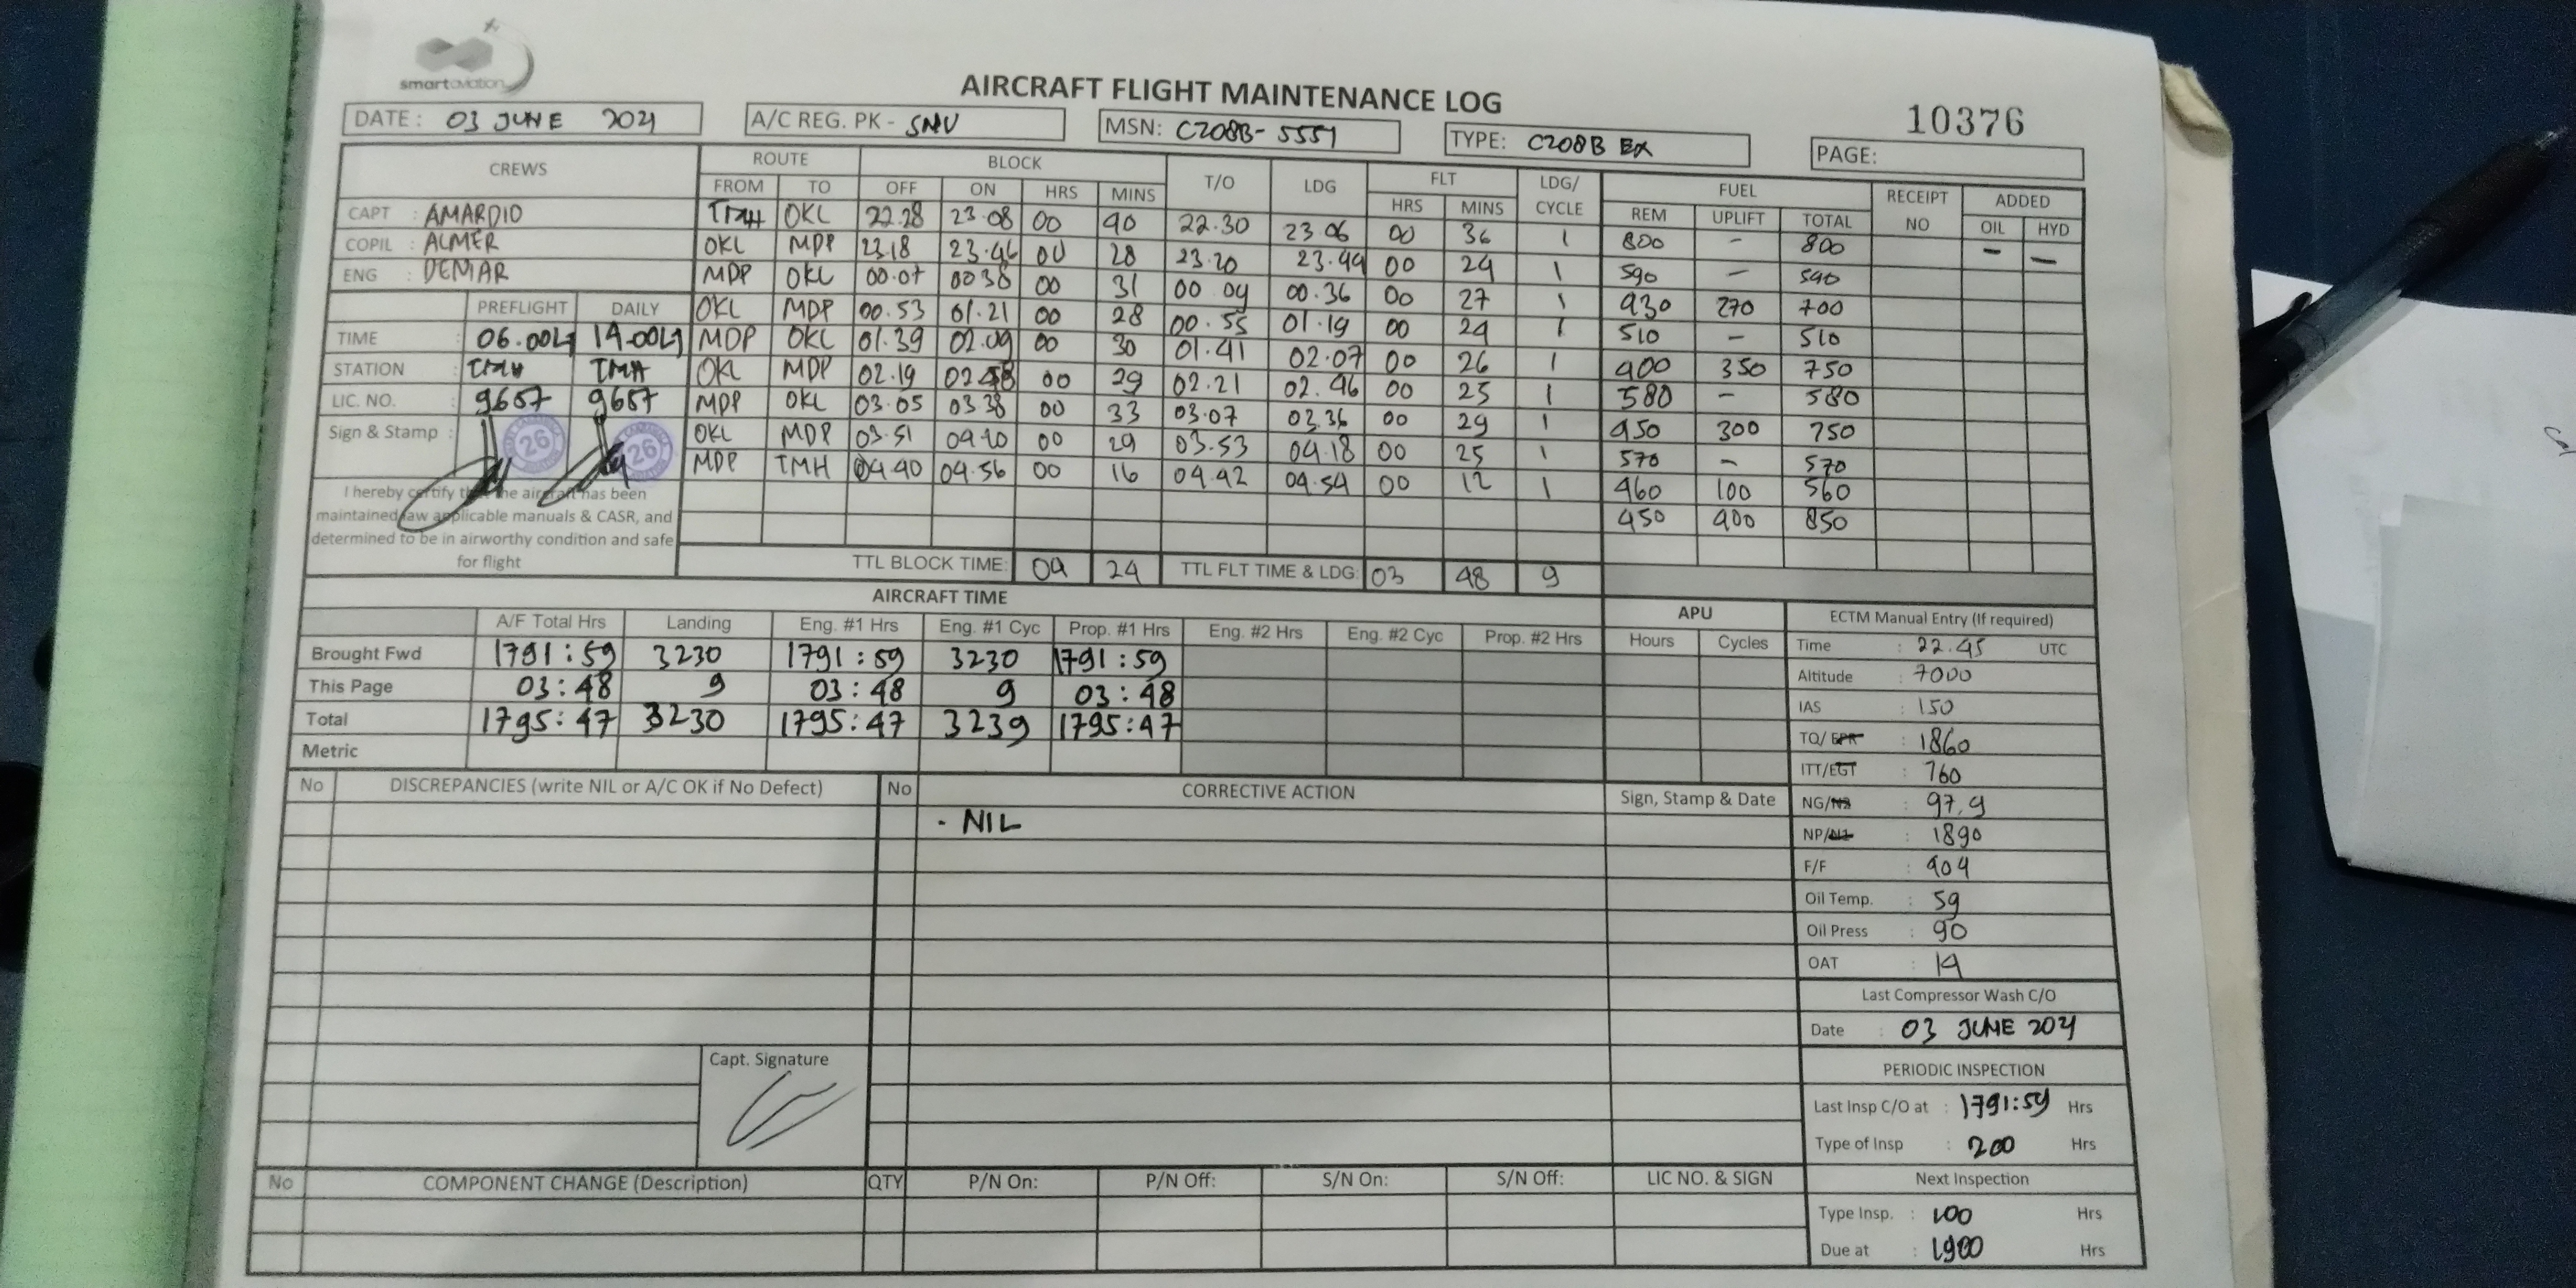 smartaviation
AIRCRAFT FLIGHT MAINTENANCE LOG
10376
DATE : 03 JUNE 2021 A/C REG. PK - SNU MSN: C208B-5551 TYPE: C208B EX PAGE:
CREWS ROUTE BLOCK T/O LDG FLT LDG/ CYCLE FUEL RECEIPT NO ADDED
FROM TO OFF ON HRS MINS HRS MINS REM UPLIFT TOTAL OIL HYD
CAPT : AMARDIO TMH OKL 22.28 23.08 00 40 22.30 23.06 00 36 1 800 - 800 - -
COPIL : ALMER OKL MDP 23.18 23.46 00 28 23.20 23.44 00 24 1 590 - 590
ENG : DEMAR MDP OKL 00.07 00 38 00 31 00 09 00.36 00 27 1 430 270 700
PREFLIGHT DAILY OKL MDP 00.53 01.21 00 28 00.55 01.19 00 24 1 510 - 510
TIME : 06.00LT 14.00LT MDP OKL 01.39 02.09 00 30 01.41 02.07 00 26 1 400 350 750
STATION : TMH TMH OKL MDP 02.19 02 48 00 29 02.21 02.46 00 25 1 580 - 580
LIC. NO. : 9657 9657 MDP OKL 03.05 03 38 00 33 03.07 03.36 00 29 1 450 300 750
Sign & Stamp : 26 26 OKL MDP 03.51 04.20 00 29 03.53 04.18 00 25 1 570 - 570
MDP TMH 04.40 04.56 00 16 04.42 04.54 00 12 1 460 100 560
450 400 850
I hereby certify that the aircraft has been
maintained iaw applicable manuals & CASR, and
determined to be in airworthy condition and safe
for flight
TTL BLOCK TIME: 04 24 TTL FLT TIME & LDG: 03 48 9
AIRCRAFT TIME APU ECTM Manual Entry (If required)
A/F Total Hrs Landing Eng. #1 Hrs Eng. #1 Cyc Prop. #1 Hrs Eng. #2 Hrs Eng. #2 Cyc Prop. #2 Hrs Hours Cycles
Brought Fwd 1791:59 3230 1791:59 3230 1791:59
This Page 03:48 9 03:48 9 03:48
Total 1795:47 3230 1795:47 3239 1795:47
Metric
Time : 22.45 UTC
Altitude : 7000
IAS : 150
TQ/EPR : 1860
ITT/EGT : 760
NG/N2 : 97.9
NP/N1 : 1890
F/F : 404
Oil Temp. : 59
Oil Press : 90
OAT : 14
No DISCREPANCIES (write NIL or A/C OK if No Defect) No CORRECTIVE ACTION Sign, Stamp & Date
- NIL
Capt. Signature
Last Compressor Wash C/O
Date : 03 JUNE 2021
PERIODIC INSPECTION
Last Insp C/O at : 1791:59 Hrs
Type of Insp : 200 Hrs
Next Inspection
Type Insp. : 100 Hrs
Due at : 1900 Hrs
No COMPONENT CHANGE (Description) QTY P/N On: P/N Off: S/N On: S/N Off: LIC NO. & SIGN